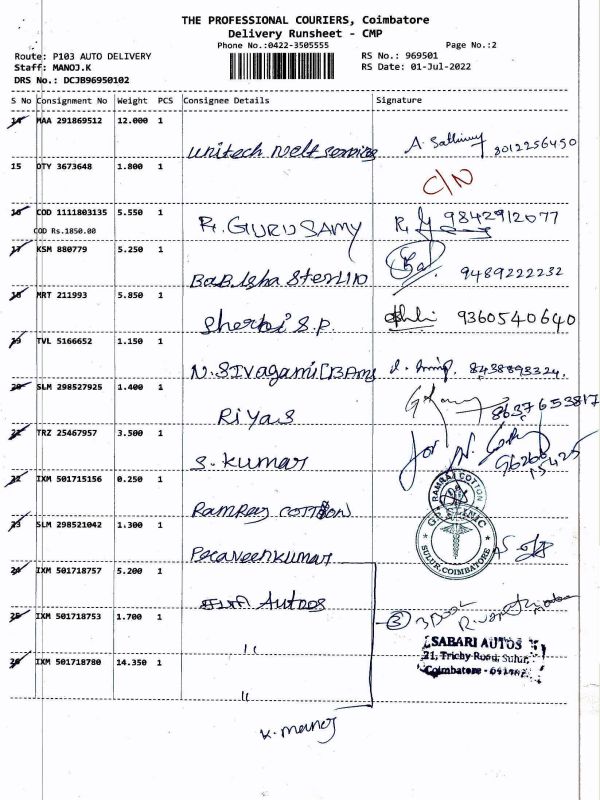 THE PROFESSIONAL COURIERS, Coimbatore
Delivery Runsheet - CMP
Phone No.:0422-3505555 Page No.:2
Route: P103 AUTO DELIVERY RS No.: 969501
Staff: MANOJ.K RS Date: 01-Jul-2022
DRS No.: DCJB96950102
S No Consignment No Weight PCS Consignee Details Signature
14 MAA 291869512 12.000 1
unitech Weld services A. 8012256450
15 DTY 3673648 1.800 1
C/N
16 COD 1111803135 5.550 1
COD Rs.1850.00
R. GURUSAMY 9842912077
17 KSM 880779 5.250 1
9489222232
18 MRT 211993 5.850 1
S.P. 9360540640
19 TVL 5166652 1.150 1
N. SIvagami 8438893324
20 SLM 298527925 1.400 1
Riyas 8637653817
21 TRZ 25467957 3.500 1
S. Kumar for 96268
15425
22 IXM 501715156 0.250 1
RAMRAJ COTTON
RAMRAJ COTTON
23 SLM 298521042 1.300 1
CLINIC
SULUR, COIMBATORE
Praveenkumar
24 IXM 501718757 5.200 1
Autos
25 IXM 501718753 1.700 1
3
"
SABARI AUTOS
21, Trichy Road, Sulur,
Coimbatore -
26 IXM 501718780 14.350 1
"
K. manoj